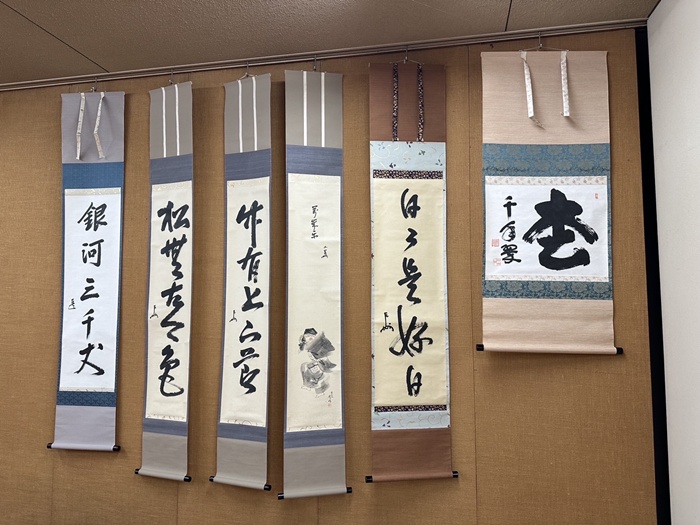 枩
千年翠
日々是好日
竹有上下節
松無古今色
銀河三千丈